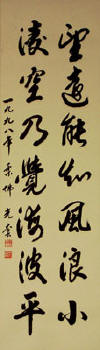 望遠能知風浪小
凌空乃覺海波平
一九九八年 秉坤 光雲